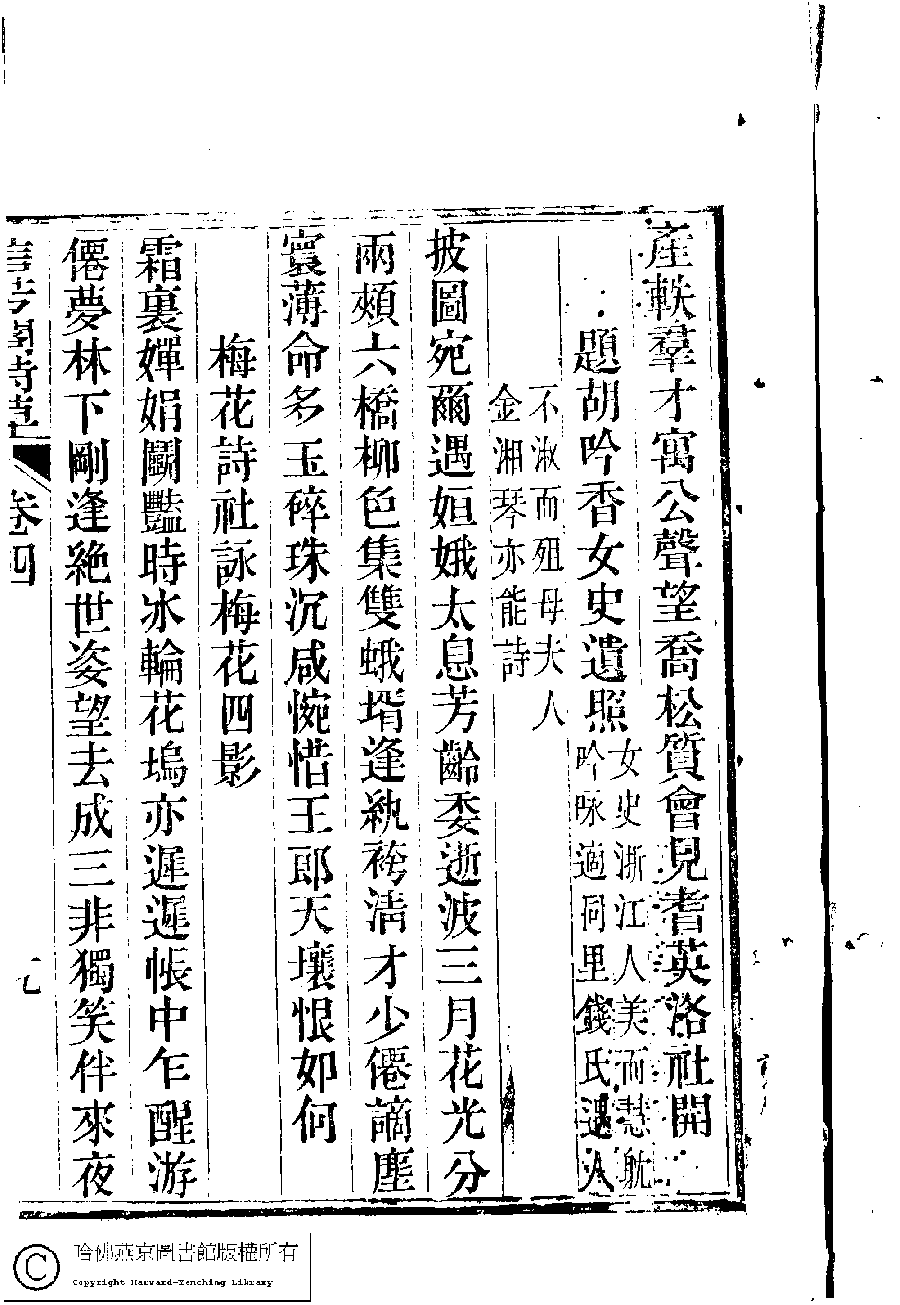 產軼羣才寓公聲望喬松質會見耆英洛社開
題胡吟香女史遺照
女史浙江人美而慧躭
吟咏適同里錢氏遇人
不淑而殂母夫人
金湘琴亦能詩
披圖宛爾遇姮娥太息芳齡委逝波三月花光分
兩頰六橋柳色集雙蛾壻逢紈袴淸才少僊謫塵
寰薄命多玉碎珠沉咸惋惜王郎天壤恨如何
梅花詩社詠梅花四影
霜裏嬋娟鬭豔時冰輪花塢亦遲遲帳中乍醒游
僊夢林下剛逢絕世姿望去成三非獨笑伴來夜
卷四
哈佛燕京圖書館版權所有
Copyright Harvard-Yenching Library